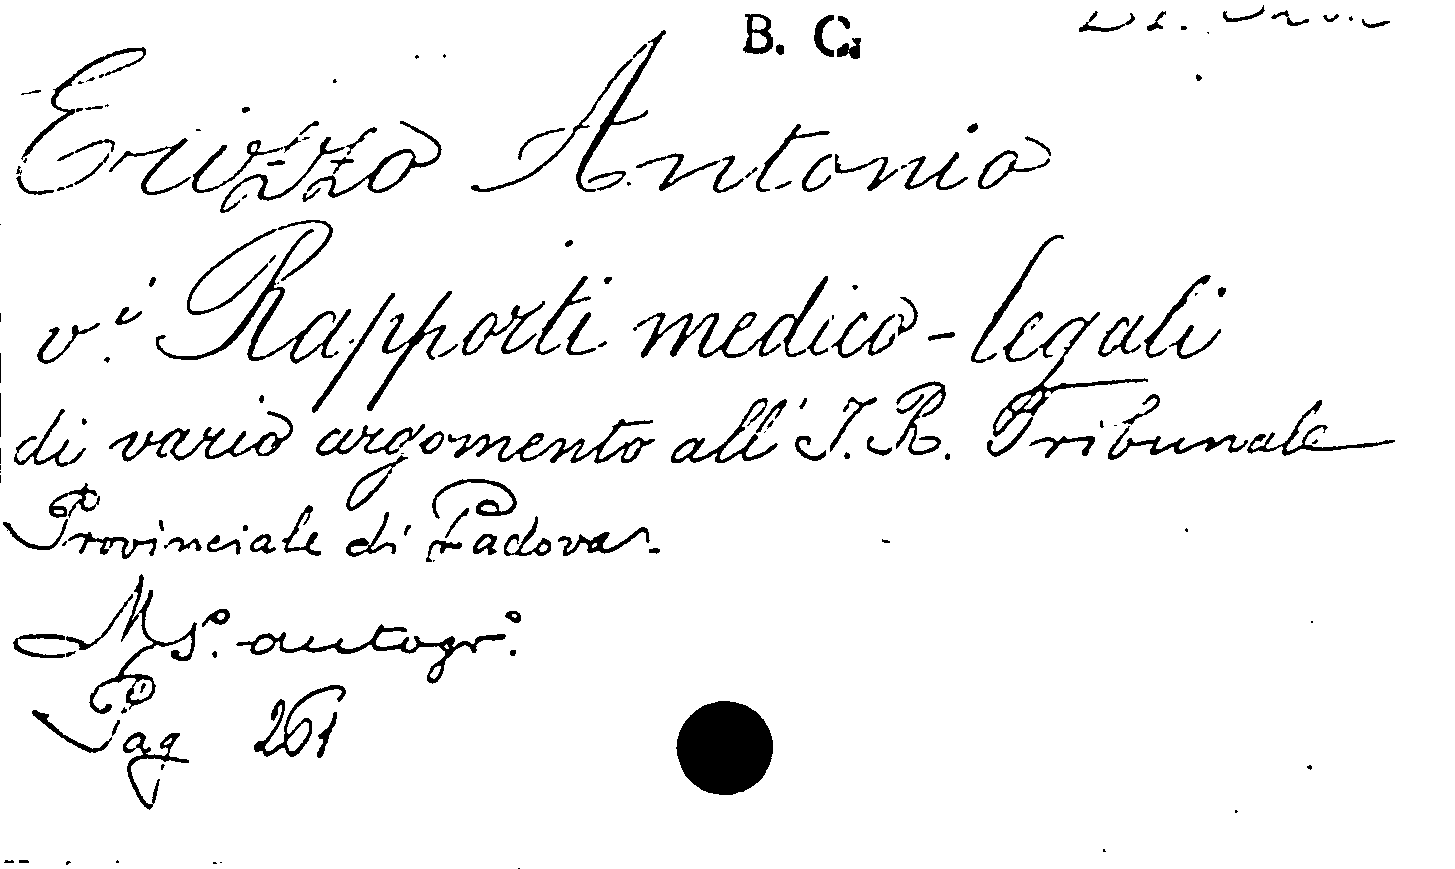 B. C.
Erizzo Antonio
v.i Rapporti medico-legali
di vario argomento all' I. R. Tribunale
Provinciale di Padova.
Ms.° autogr.°
Pag 261